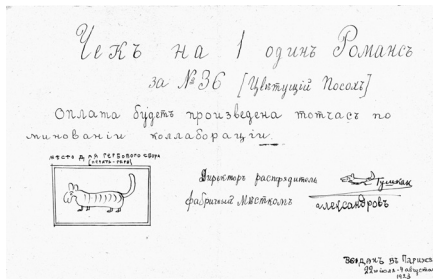 Чекъ на 1 одинъ Романсъ
за №36 [Цвѣтущій Посохъ]
Оплата будетъ произведена тотчасъ по
минованіи коллабораціи.
МѢСТО ДЛЯ ГЕРБОВАГО СБОРА
Директоръ распрядитель
фабричный Мѣсткомъ
Александровъ
въ Парижѣ
22 іюля-9 августа
1923